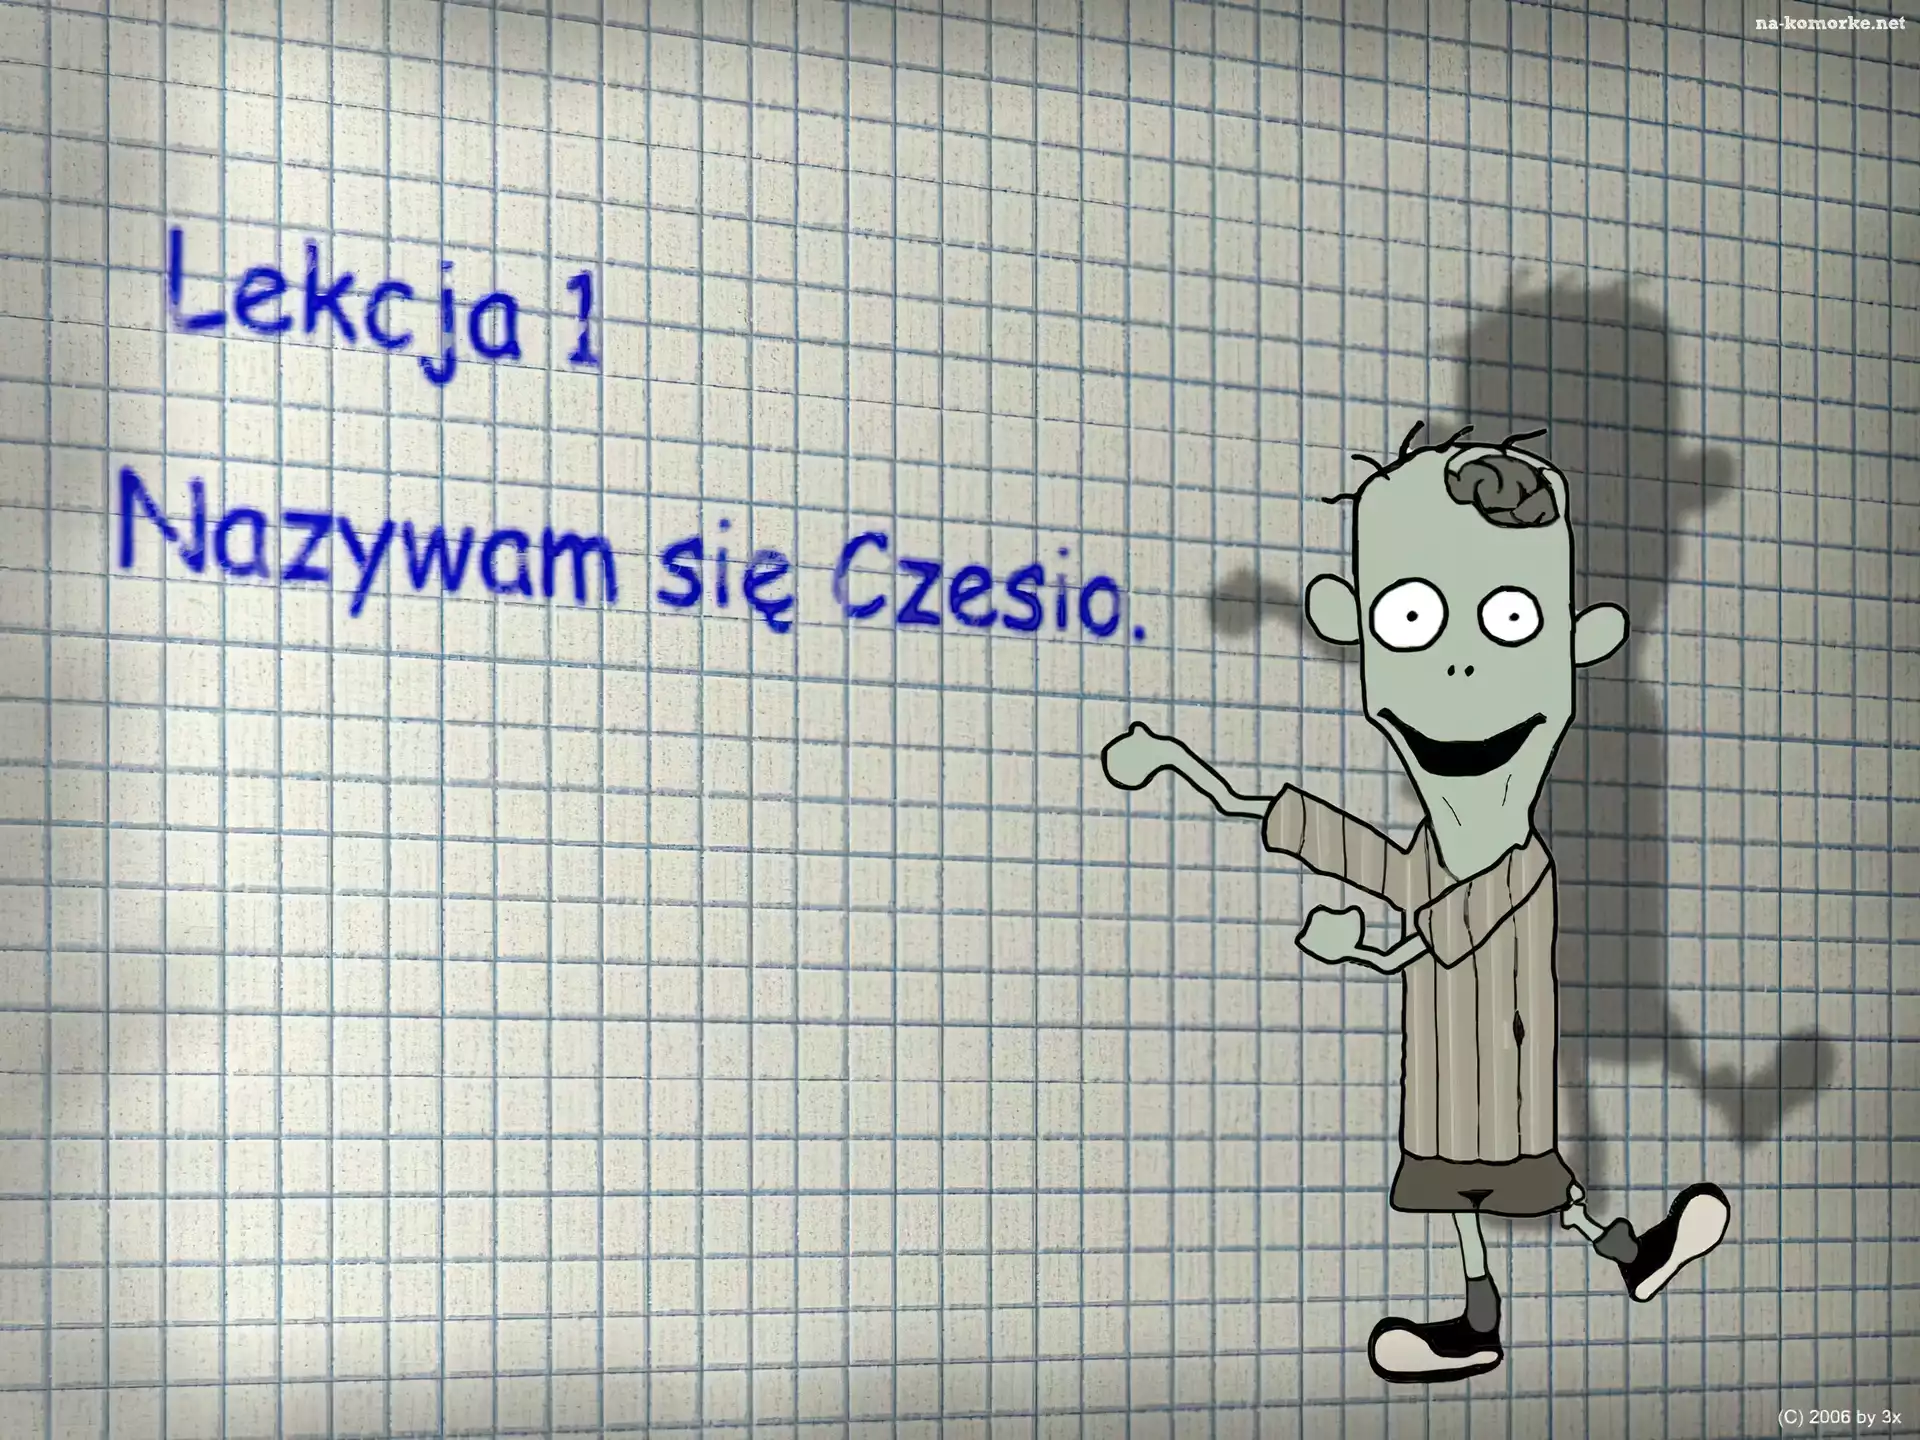 na-komorke.net
Lekcja 1
Nazywam się Czesio.
(C) 2006 by 3x